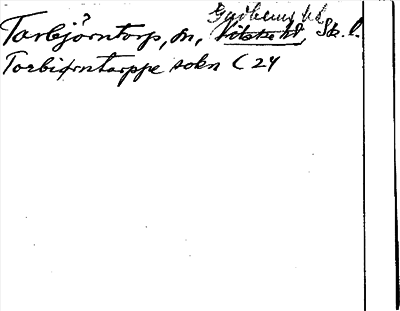 Gudhems hd
Torbjörntorp, sn, Vilske hd, Sk. l.
Torbiørntorppe sokn C 24